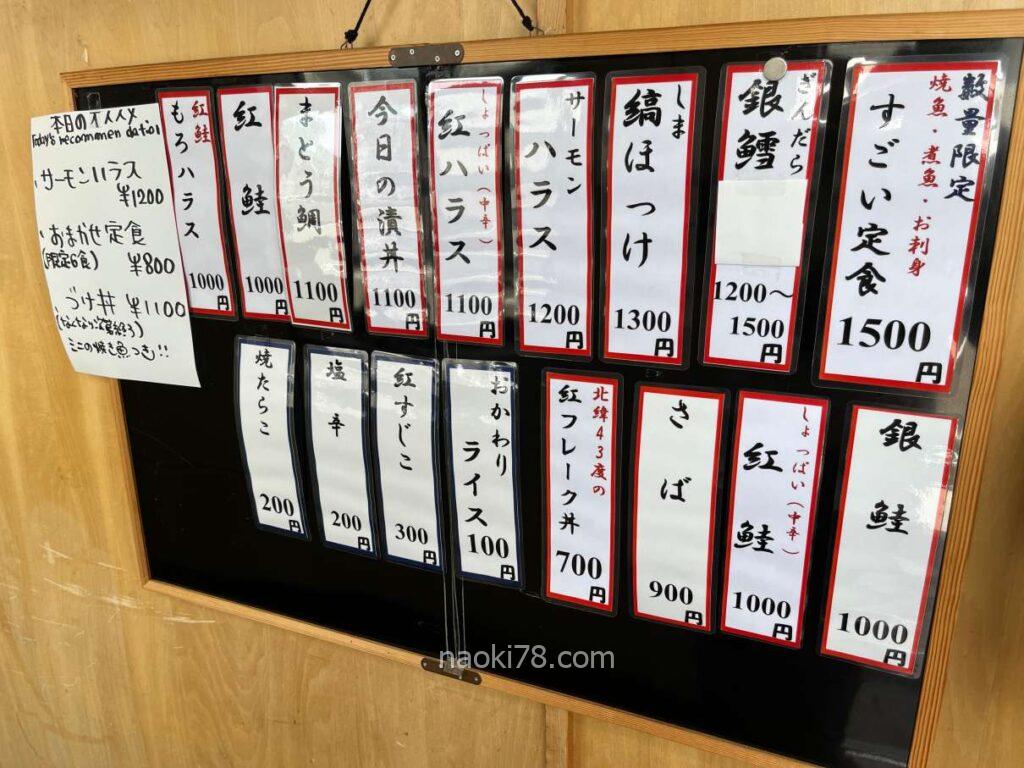 数量限定
焼魚・煮魚・お刺身
すごい定食
1500円
ぎんだら
銀鱈
1200〜
1500円
しま
縞ほっけ
1300円
サーモン
ハラス
1200円
しょっぱい(中辛)
紅ハラス
1100円
今日の漬丼
1100円
まとう鯛
1100円
紅鮭
1000円
紅鮭
もろハラス
1000円
本日のオススメ
Today's recommendation
・サーモンハラス
¥1200
・おまかせ定食
(限定6食) ¥800
・づけ丼 ¥1100
ミニの焼き魚つき!!
銀鮭
1000円
しょっぱい(中辛)
紅鮭
1000円
さば
900円
北緯43度の
紅フレーク丼
700円
おかわり
ライス
100円
紅すじこ
300円
塩辛
200円
焼たらこ
200円
naoki78.com